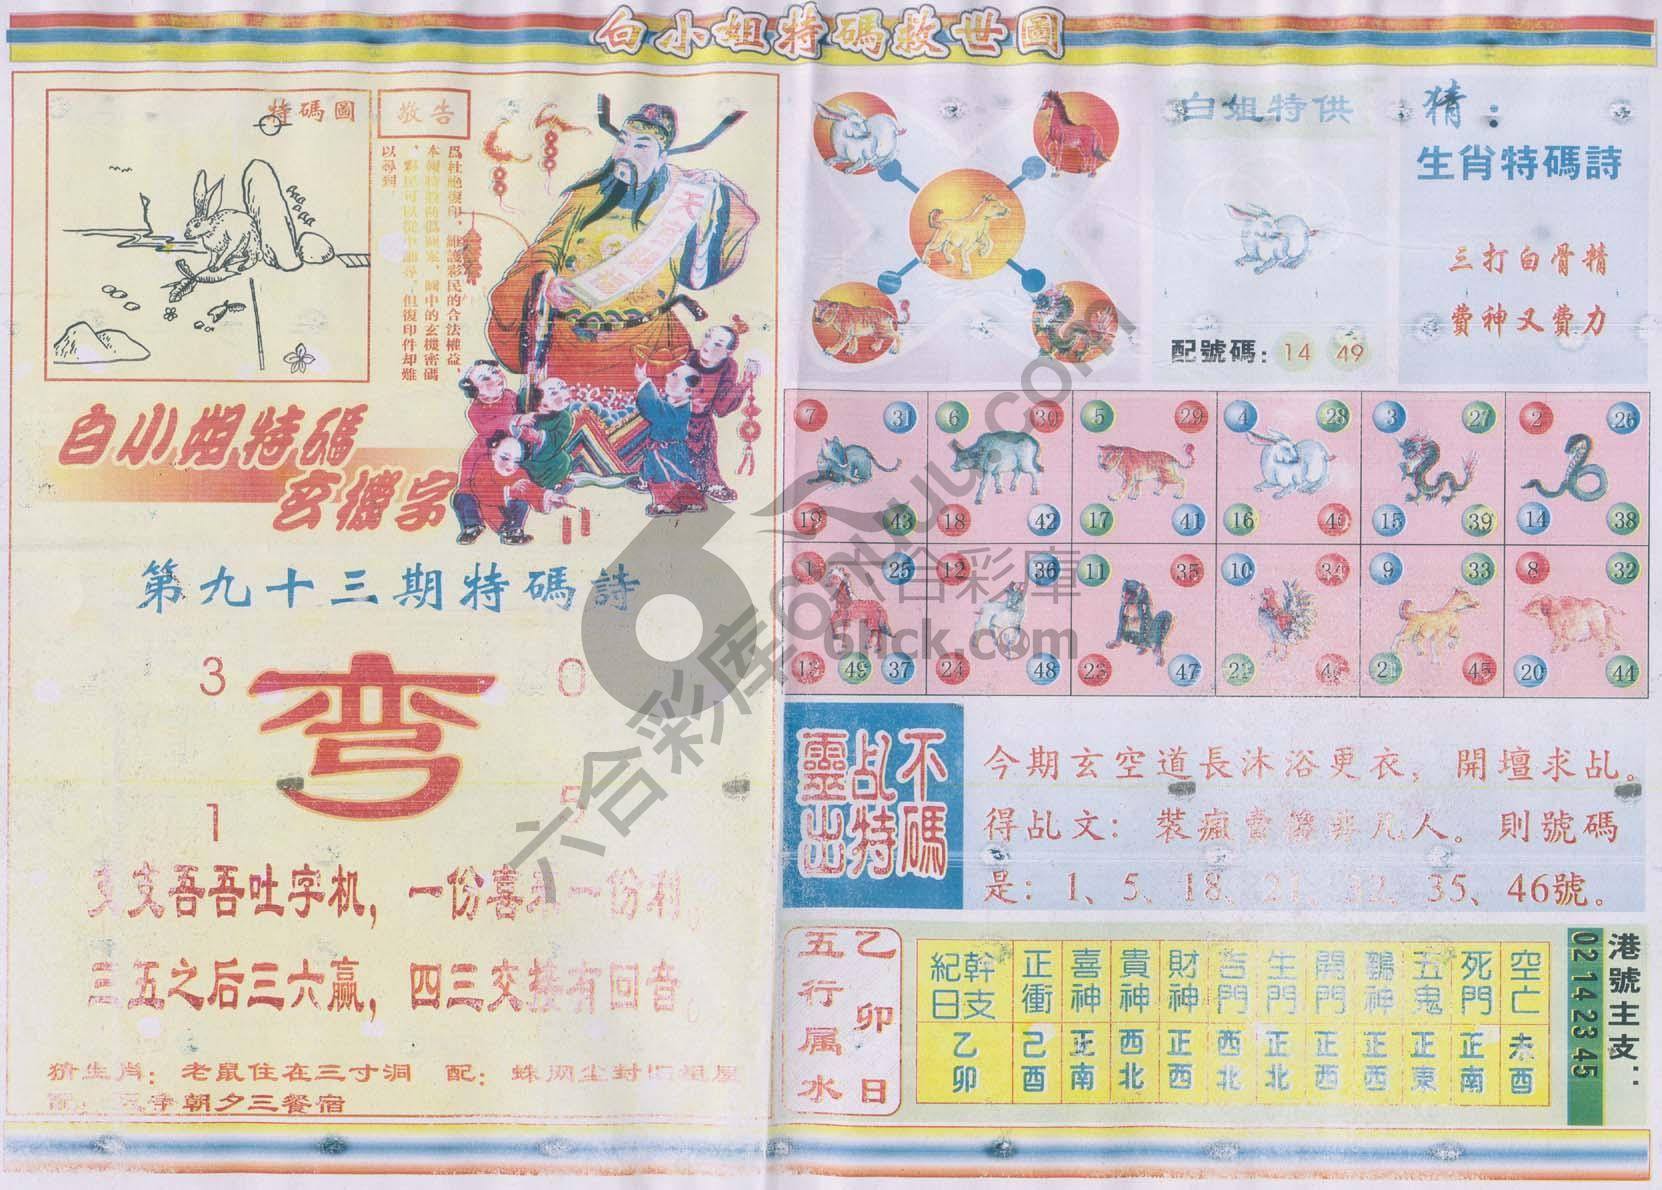 白小姐特碼救世圖
特碼圖
敬告
爲杜絶復印，維護彩民的合法權益，
本報特設防僞圖案，圖中的玄機密碼
，彩民可以從中細尋。但復印件却難
以尋到。
白小姐特碼
玄機字
第九十三期特碼詩
3 0
弯
1 5
支支吾吾吐字机，一份喜来一份利。
三五之后三六赢，四三交接有回音。
猜生肖：老鼠住在三寸洞 配：蛛网尘封旧祖屋
朝夕三餐宿
白姐特供
配號碼：14 49
猜：
生肖特碼詩
三打白骨精
費神又費力
7 31 6 30 5 29 4 28 3 27 2 26
19 43 18 42 17 41 16 40 15 39 14 38
1 25 12 36 11 35 10 34 9 33 8 32
13 49 37 24 48 23 47 22 46 21 45 20 44
不碼
乩特
靈出
今期玄空道長沐浴更衣，開壇求乩。
得乩文：裝瘋賣傻弄凡人。則號碼
是：1、5、18、21、32、35、46號。
乙卯日
五行属水
紀日 幹支 正衝 喜神 貴神 財神 吉門 生門 開門 鶴神 五鬼 死門 空亡
乙卯 己酉 正南 西北 正西 西北 正北 正西 正西 正東 正南 未酉
港號主支：
02 14 23 45
六合彩库 6HXUU.com
六合彩庫
6hck.com